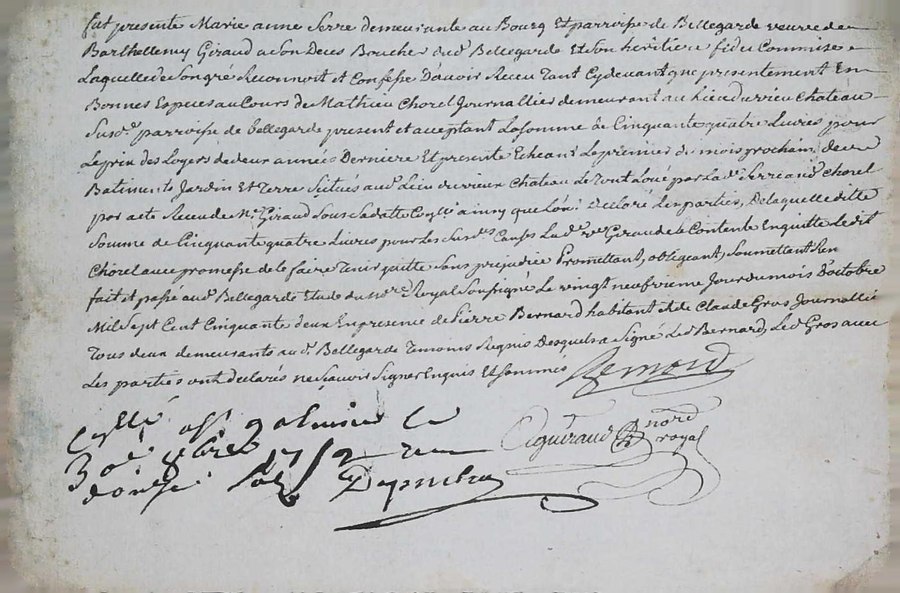 fut presente Marie anne Serre demeurante au Bourg Et parroisse de Bellegarde veuve de
Barthellemy Giraud a Son Deces Boucher dud. Bellegarde Et Son heritiere fideicommise
Laquelle de Son gré Reconnoit et Confesse D'avoir Receu Tant Cydevant que presentement En
Bonnes Especes au Cours de Mathieu Chorel Journallier demeurant au Lieu du vieu Chateau
Susd. parroisse de bellegarde present et acceptant La Somme de Cinquante quatre Livres pour
Le prix des Loyers de deux années Derniere Et presente Echeant Le premier du mois prochain de
Batiments Jardin Et Terre Scitués aud. Lieu du vieux Chateau Le Tout Loué par Lad. Serre aud. Chorel
par acte Receu de Me. Giraud Sous Sa datte ainsy que L'ont declaré Les parties, De laquelle ditte
Somme de Cinquante quatre Livres pour Les Susd. Causes Lad. ve. Giraud Se Contente En quitte Ledit
Chorel avec promesse de Le faire Tenir quitte Sans prejudice Promettant, obligeant, Soumettant Ren
fait et passé aud. Bellegarde Etude du nore. Royal Soussigné Le vingt neufvieme Jour du mois D'octobre
Mil Sept Cent Cinquante deux En presence de Pierre Bernard habitant Et de Claude Gros Journallié
Tous deux demeurants aud. Bellegarde Temoins Requis Desquels a Signé Led. Bernard, Led. Gros avec
Les parties ont declarés ne Scavoir Signer Enquis Et Sommés
Bernard
Giguéraud nore royal
Collé a St galmier le
3e 9bre 1752 Reçu
douze Sols